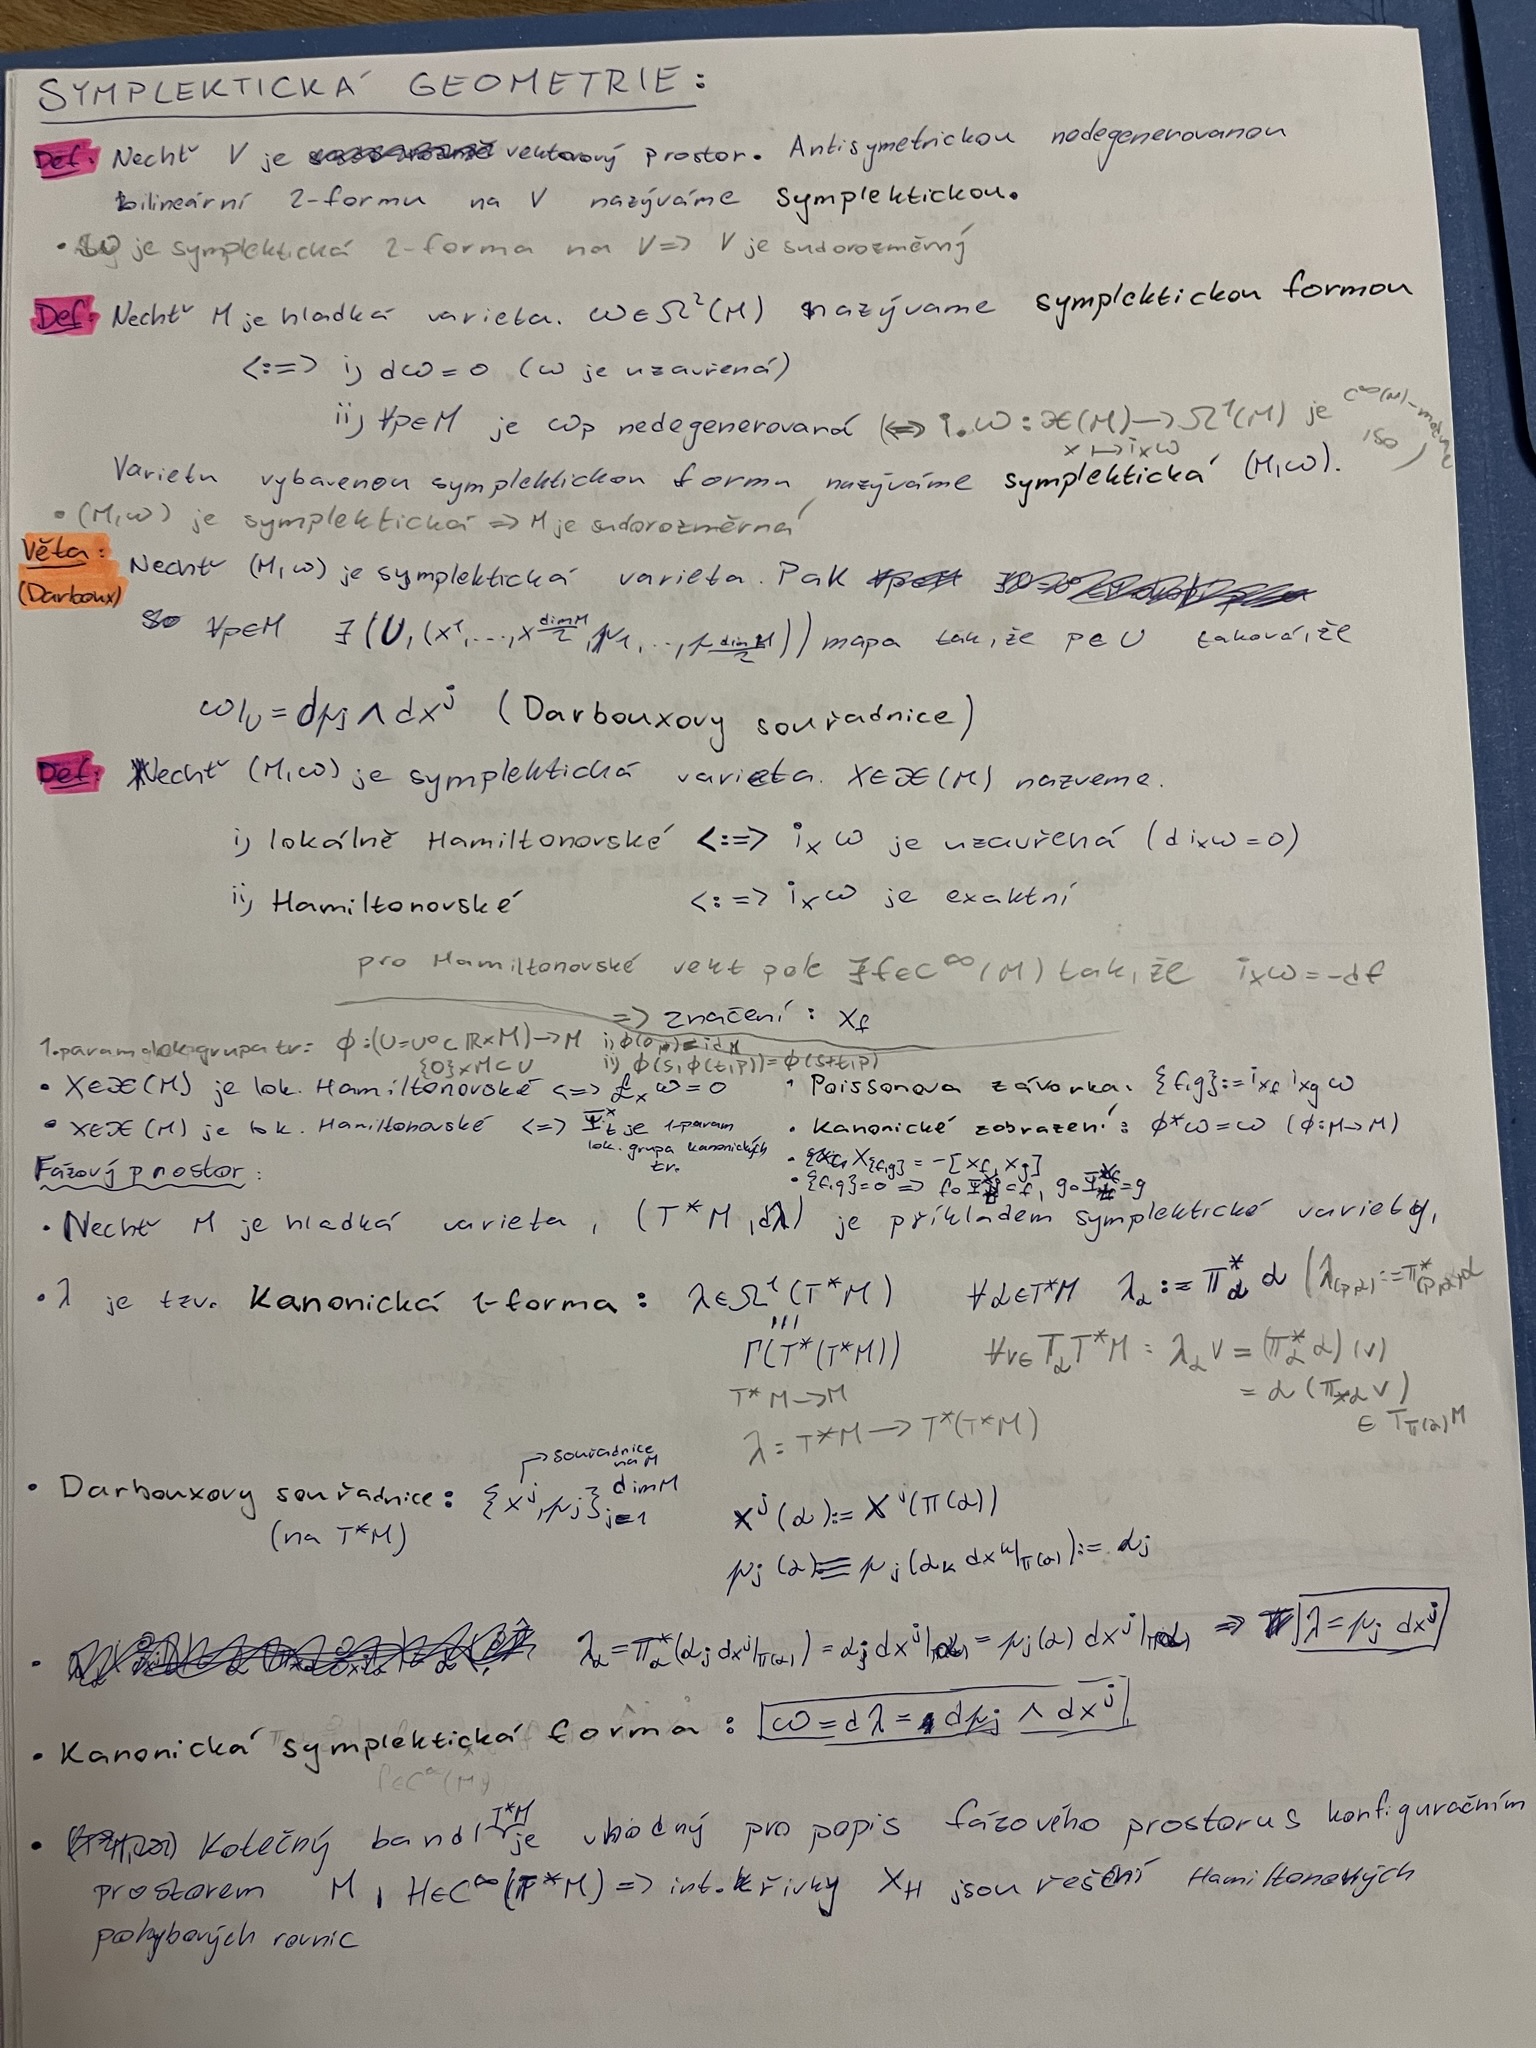 SYMPLEKTICKÁ GEOMETRIE:
Def: Nechť V je vektorový prostor. Antisymetrickou nedegenerovanou
bilineární 2-formu na V nazýváme symplektickou.
• ω je symplektická 2-forma na V => V je sudorozměrný
Def: Nechť M je hladká varieta. ω∈Ω²(M) nazývame symplektickou formou
<:=> i) dω = 0 (ω je uzavřená)
ii) ∀p∈M je ωp nedegenerovaná (<=> i.ω : 𝔛(M) → Ω¹(M) je C^∞(M)-
X ↦ i_X ω
iso)
Varietu vybavenou symplektickou formu nazýváme symplektická (M,ω).
• (M,ω) je symplektická => M je sudorozměrná
Věta: (Darboux) Nechť (M,ω) je symplektická varieta. Pak
∀p∈M ∃(U,(x¹,...,x^{dimM/2},p₁,...,p_{dimM/2})) mapa tak, že p∈U taková, že
ω|_U = dp_j ∧ dx^j (Darbouxovy souřadnice)
Def: Nechť (M,ω) je symplektická varieta. X∈𝔛(M) nazveme.
i) lokálně Hamiltonovské <:=> i_X ω je uzavřená (d i_X ω = 0)
ii) Hamiltonovské <:=> i_X ω je exaktní
pro Hamiltonovské vekt pole ∃f∈C^∞(M) tak, že i_X ω = -df
=> značení: X_f
1.param lok grupa tr: φ:(U=U°⊂ℝ×M)→M i) φ(0,p)=id_M
{0}×M⊂U ii) φ(s,φ(t,p))=φ(s+t,p)
• X∈𝔛(M) je lok. Hamiltonovské <=> £_X ω = 0
• X∈𝔛(M) je lok. Hamiltonovské <=> Ψ_t^X je 1-param
lok. grupa kanonických
tr.
• Poissonova závorka. {f,g} := i_{X_f} i_{X_g} ω
• Kanonické zobrazení: φ*ω=ω (φ:M→M)
• X_{{f,g}} = -[X_f, X_g]
• {f,g}=0 => f∘Ψ =f, g∘Ψ =g
Fázový prostor:
• Nechť M je hladká varieta, (T*M, dλ) je příkladem symplektické variety,
• λ je tzv. Kanonická 1-forma: λ∈Ω¹(T*M) ∀α∈T*M λ_α := π*_α α (λ_{(p,α)} := π*_{(p,α)} α
Γ(T*(T*M)) ∀v∈T_αT*M : λ_α v = (π*_α α)(v)
T*M→M = α(π_{*α} v)
∈ T_{π(α)}M
λ : T*M → T*(T*M)
• Darbouxovy souřadnice: {x^j, p_j}_{j=1}^{dimM}
souřadnice na M
(na T*M)
x^j(α) := x^j(π(α))
p_j(α) ≡ p_j(α_k dx^k|_{π(α)}) := α_j
• λ_α = π*_α(α_j dx^j|_{π(α)}) = α_j dx^j|_α = p_j(α) dx^j|_α => λ = p_j dx^j
• Kanonická symplektická forma: ω = dλ = dp_j ∧ dx^j
f∈C^∞(M)
• Kotečný bandl T*M je vhodný pro popis fázového prostoru s konfiguračním
prostorem M, H∈C^∞(T*M) => int. křivky X_H jsou řešní Hamiltonových
pohybových rovnic